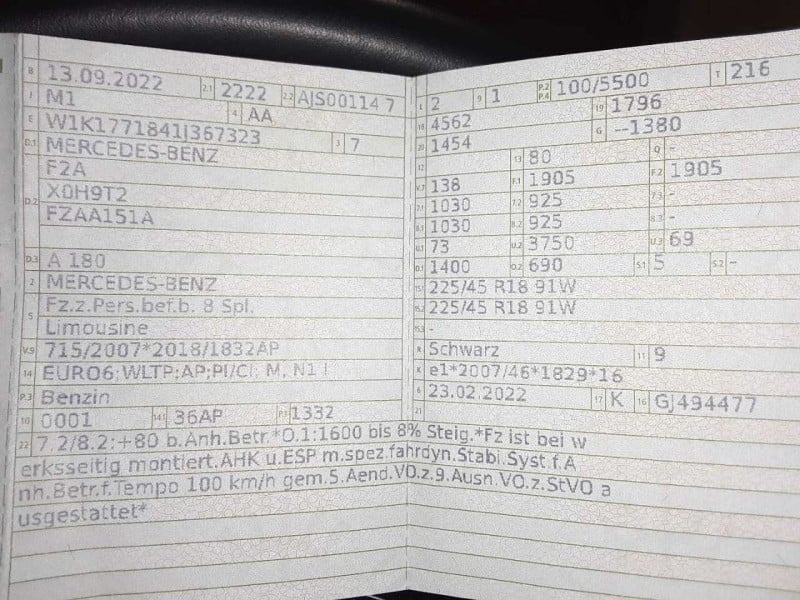 B 13.09.2022 2.1 2222 2.2 AJS00114 7
J M1 4 AA
E W1K1771841J367323 3 7
D.1 MERCEDES-BENZ
F2A
D.2 X0H9T2
FZAA151A
D.3 A 180
2 MERCEDES-BENZ
5 Fz.z.Pers.bef.b. 8 Spl.
Limousine
V.9 715/2007*2018/1832AP
14 EURO6;WLTP;AP;PI/CI; M, N1 I
P.3 Benzin
10 0001 14.1 36AP P.1 1332
L 2 9 1 P.2 P.4 100/5500 T 216
18 4562 19 1796
20 1454 G --1380
12 13 80 Q -
V.7 138 F.1 1905 F.2 1905
7.1 1030 7.2 925 7.3 -
8.1 1030 8.2 925 8.3 -
U.1 73 U.2 3750 U.3 69
O.1 1400 O.2 690 S.1 5 S.2 -
15.1 225/45 R18 91W
15.2 225/45 R18 91W
15.3 -
R Schwarz 11 9
K e1*2007/46*1829*16
6 23.02.2022 17 K 16 GJ494477
21
22 7.2/8.2:+80 b.Anh.Betr.*O.1:1600 bis 8% Steig.*Fz ist bei w
erksseitig montiert.AHK u.ESP m.spez.fahrdyn.Stabi.Syst.f.A
nh.Betr.f.Tempo 100 km/h gem.5.Aend.VO.z.9.Ausn.VO.z.StVO a
usgestattet*